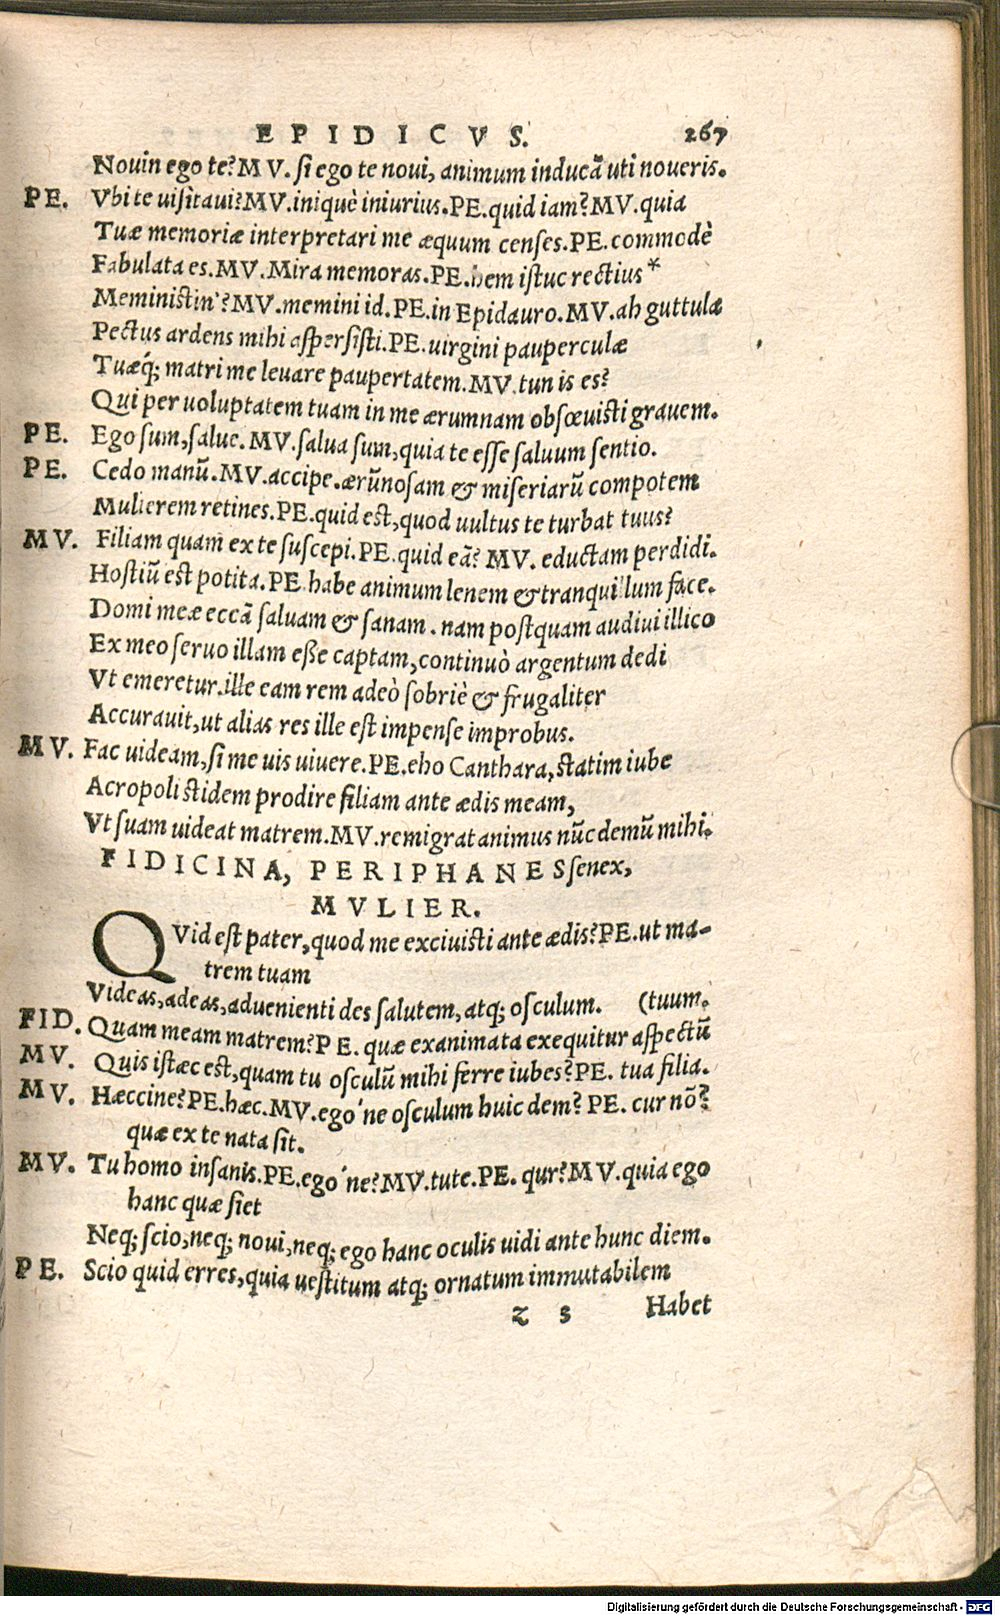 EPIDICVS. 267
Novin ego te? MV. si ego te novi, animum inducā uti noveris.
PE. Vbi te uisitaui? MV. iniquè iniurius. PE. quid iam? MV. quia
Tuæ memoriæ interpretari me æquum censes. PE. commodè
Fabulata es. MV. Mira memoras. PE. hem istuc rectius*
Meministin'? MV. memini id. PE. in Epidauro. MV. ah guttulæ
Pectus ardens mihi aspersisti. PE. uirgini pauperculæ
Tuæq́; matri me leuare paupertatem. MV. tun is es?
Qui per uoluptatem tuam in me ærumnam obsœuisti grauem.
PE. Ego sum, salue. MV. salua sum, quia te esse saluum sentio.
PE. Cedo manū. MV. accipe. ærūnosam & miseriarū compotem
Mulierem retines. PE. quid est, quod uultus te turbat tuus?
MV. Filiam quam ex te suscepi. PE. quid eā? MV. eductam perdidi.
Hostiū est potita. PE. habe animum lenem & tranquillum face.
Domi meæ eccā saluam & sanam. nam postquam audiui illico
Ex meo seruo illam eße captam, continuò argentum dedi
Vt emeretur. ille eam rem adeò sobriè & frugaliter
Accurauit, ut alias res ille est impense improbus.
MV. Fac uideam, si me uis uiuere. PE. eho Canthara, statim iube
Acropolistidem prodire filiam ante ædis meam,
Vt suam uideat matrem. MV. remigrat animus nūc demū mihi.
FIDICINA, PERIPHANES senex,
MVLIER.
QVid est pater, quod me exciuisti ante ædis? PE. ut ma-
trem tuam
Videas, adeas, aduenienti des salutem, atq; osculum. (tuum.
FID. Quam meam matrem? PE. quæ exanimata exequitur aspectū
MV. Quis istæc est, quam tu osculū mihi ferre iubes? PE. tua filia.
MV. Hæccine? PE. hæc. MV. ego'ne osculum huic dem? PE. cur nō?
quæ ex te nata sit.
MV. Tu homo insanis. PE. ego'ne? MV. tute. PE. qur? MV. quia ego
hanc quæ siet
Neq; scio, neq; noui, neq; ego hanc oculis uidi ante hunc diem.
PE. Scio quid erres, quia uestitum atq; ornatum immutabilem
z 3 Habet
Digitalisierung gefördert durch die Deutsche Forschungsgemeinschaft - DFG